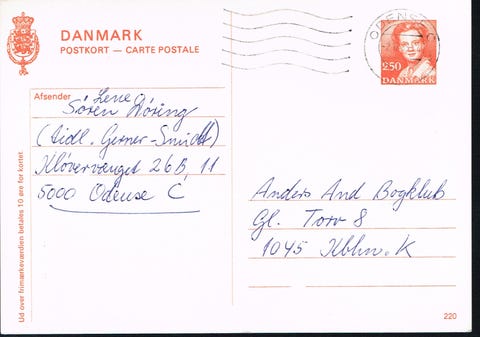 DANMARK
POSTKORT — CARTE POSTALE
ODENSE C
2.50
DANMARK
Afsender
Lene
Søren Döring
(tidl. Gerner-Smidt)
Kløvervænget 26B, 11
5000 Odense C
Anders And Bogklub
Gl. Torv 8
1045 Kbhn. K
Ud over frimærkeværdien betales 10 øre for kortet
220